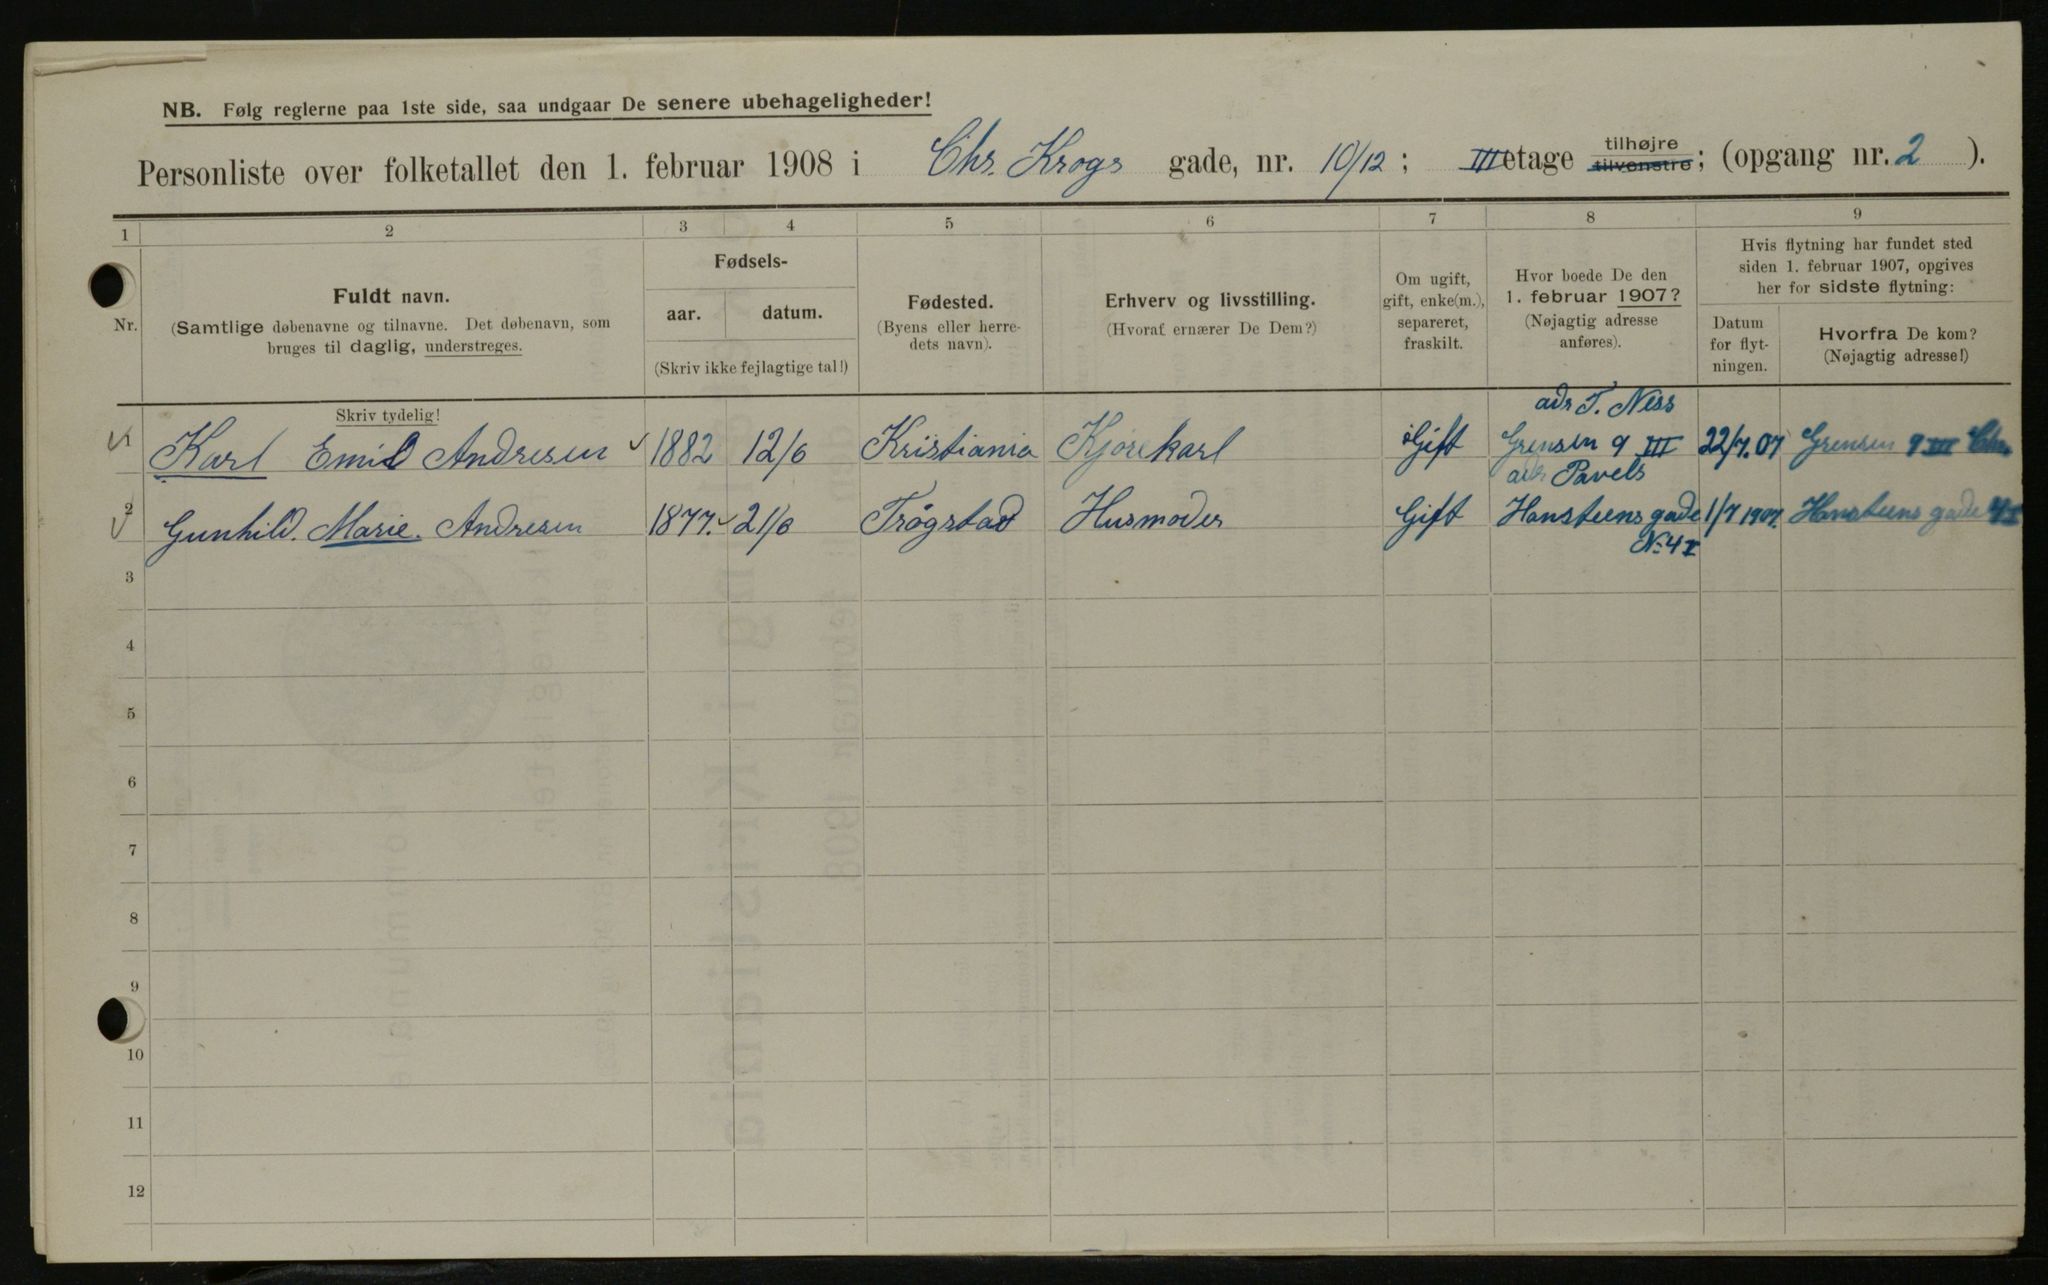 NB. Følg reglerne paa 1ste side, saa undgaar De senere ubehageligheder!
Personliste over folketallet den 1. februar 1908 i Chr. Krogs gade, nr. 10/12; III etage tilhøjre tilvenstre; (opgang nr. 2 ).
1 2 3 4 5 6 7 8 9
Nr.
Fuldt navn.
(Samtlige døbenavne og tilnavne. Det døbenavn, som
bruges til daglig, understreges.
Skriv tydelig!
Fødsels-
aar. datum.
(Skriv ikke fejlagtige tal!)
Fødested.
(Byens eller herre-
dets navn).
Erhverv og livsstilling.
(Hvoraf ernærer De Dem?)
Om ugift,
gift, enke(m.),
separeret,
fraskilt.
Hvor boede De den
1. februar 1907?
(Nøjagtig adresse
anføres).
Hvis flytning har fundet sted
siden 1. februar 1907, opgives
her for sidste flytning:
Datum
for flyt-
ningen.
Hvorfra De kom?
(Nøjagtig adresse!)
adr T. Ness
1 Karl Emil Andresen 1882 12/6 Kristiania Kjørekarl Gift Grensen 9 III 22/7.07 Grensen 9 III Chr.
adr Pavels
2 Gunhild. Marie. Andresen 1877. 21/6 Trøgstad Husmoder Gift Hansteens gade 1/7 1907. Hansteens gade 4 I
No 4 I
3
4
5
6
7
8
9
10
11
12